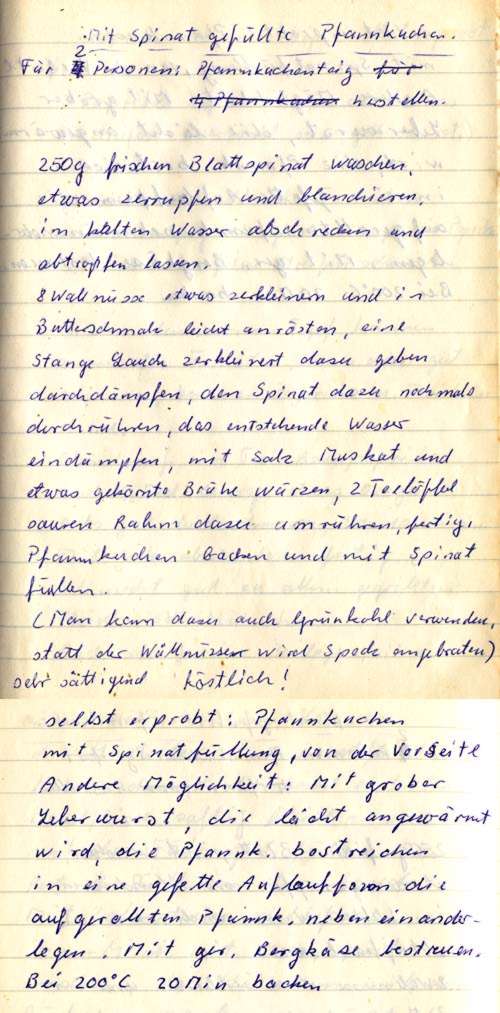 Mit Spinat gefüllte Pfannkuchen.
Für 2 Personen: Pfannkuchenteig für
4 Pfannkuchen herstellen.
250g frischen Blattspinat waschen,
etwas zerrupfen und blanchieren,
in kalten Wasser abschrecken und
abtropfen lassen.
8 Wallnüsse etwas zerkleinern und in
Butterschmalz leicht anrösten, eine
Stange Lauch zerkleinert dazu geben
durchdämpfen, den Spinat dazu nochmals
durchrühren, das entstehende Wasser
eindämpfen, mit Salz Muskat und
etwas gekörnte Brühe würzen, 2 Teelöffel
sauren Rahm dazu umrühren, fertig.
Pfannkuchen backen und mit Spinat
füllen.
(Man kann dazu auch Grünkohl verwenden,
statt der Wallnüsse wird Speck angebraten)
sehr sättigend köstlich!
selbst erprobt: Pfannkuchen
mit Spinatfüllung, von der Vorseite
Andere Möglichkeit: Mit grober
Leberwurst, die leicht angewärmt
wird, die Pfannk. bestreichen
in eine gefette Auflaufform die
aufgerollten Pfannk. nebeneinander-
legen. Mit ger. Bergkäse bestreuen.
Bei 200°C 20Min backen